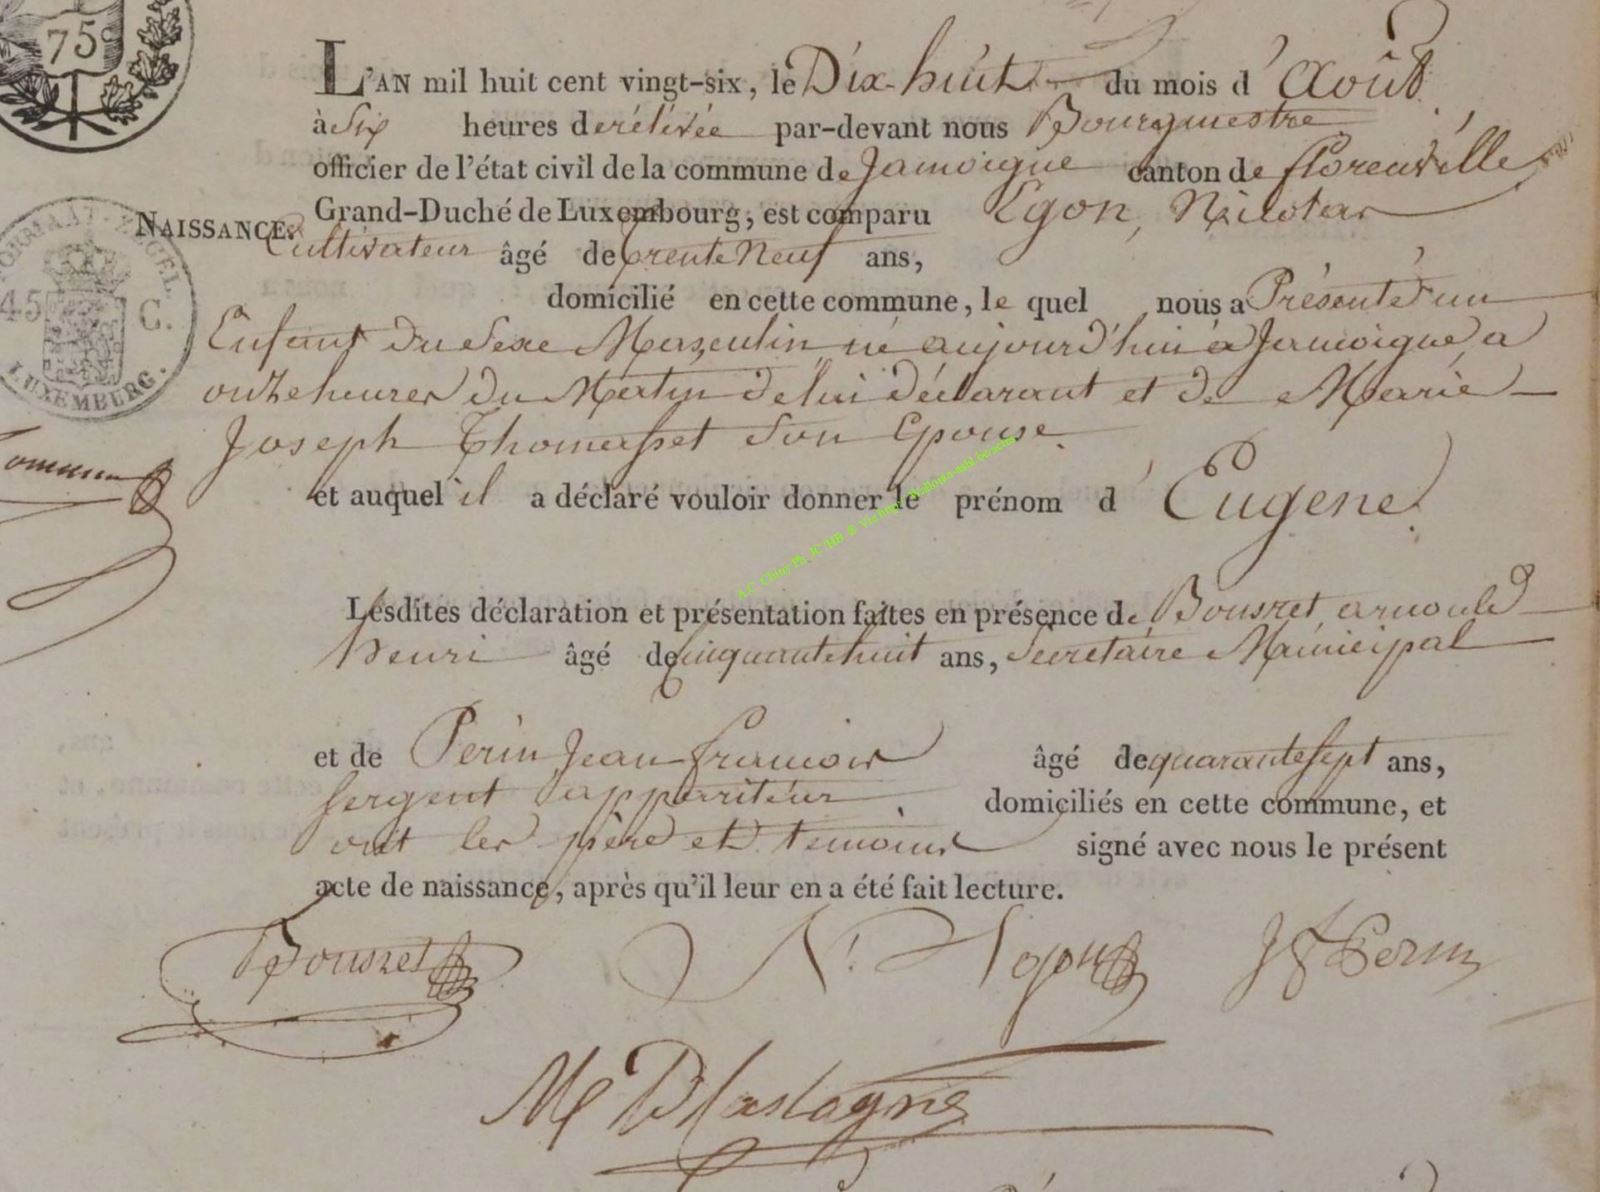 75c
L'AN mil huit cent vingt-six, le Dix-huit du mois d' Août
à Six heures de rélévée par-devant nous Bourgmestre
officier de l'état civil de la commune de Jamoigne canton de florenville
NAISSANCE. Grand-Duché de Luxembourg, est comparu Egon, Nicolas
Cultivateur âgé de trente Neuf ans,
45 C.
LUXEMBURG.
domicilié en cette commune, le quel nous a Présenté un
Enfant du Sexe Masculin né aujourd'hui à Jamoigne a
onze heures du Matin de lui déclarant et de Marie
Joseph Thomasset Son Epouse.
et auquel il a déclaré vouloir donner le prénom d' Eugene.
Lesdites déclaration et présentation faites en présence de Bousret, arnould
henri âgé de cinquante huit ans, Secretaire Municipal
et de Perin Jean francois âgé de quarante sept ans,
sergent apparriteur. domiciliés en cette commune, et
ont les père et temoins signé avec nous le présent
acte de naissance, après qu'il leur en a été fait lecture.
Bousret N. Egon J F Perin